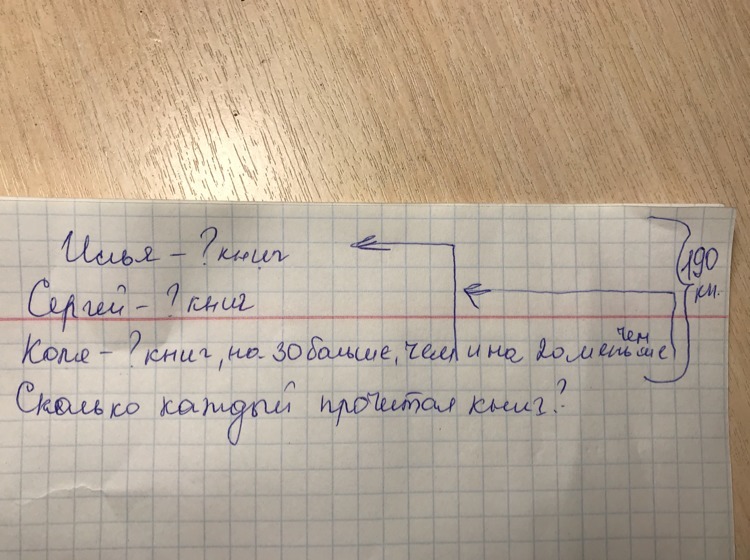 Илья - ? книг
Сергей - ? книг
190 кн.
Коля - ? книг, на 30 больше, чем и на 20 меньше чем
Сколько каждый прочитал книг?